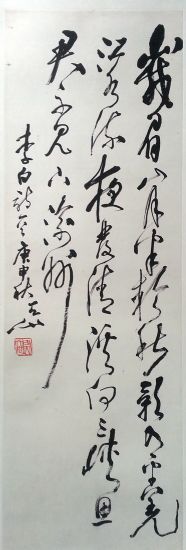 峩眉山月半輪秋影入平羌
江水流夜發清溪向三峽思
君不見下渝州
李白詩庚申秋